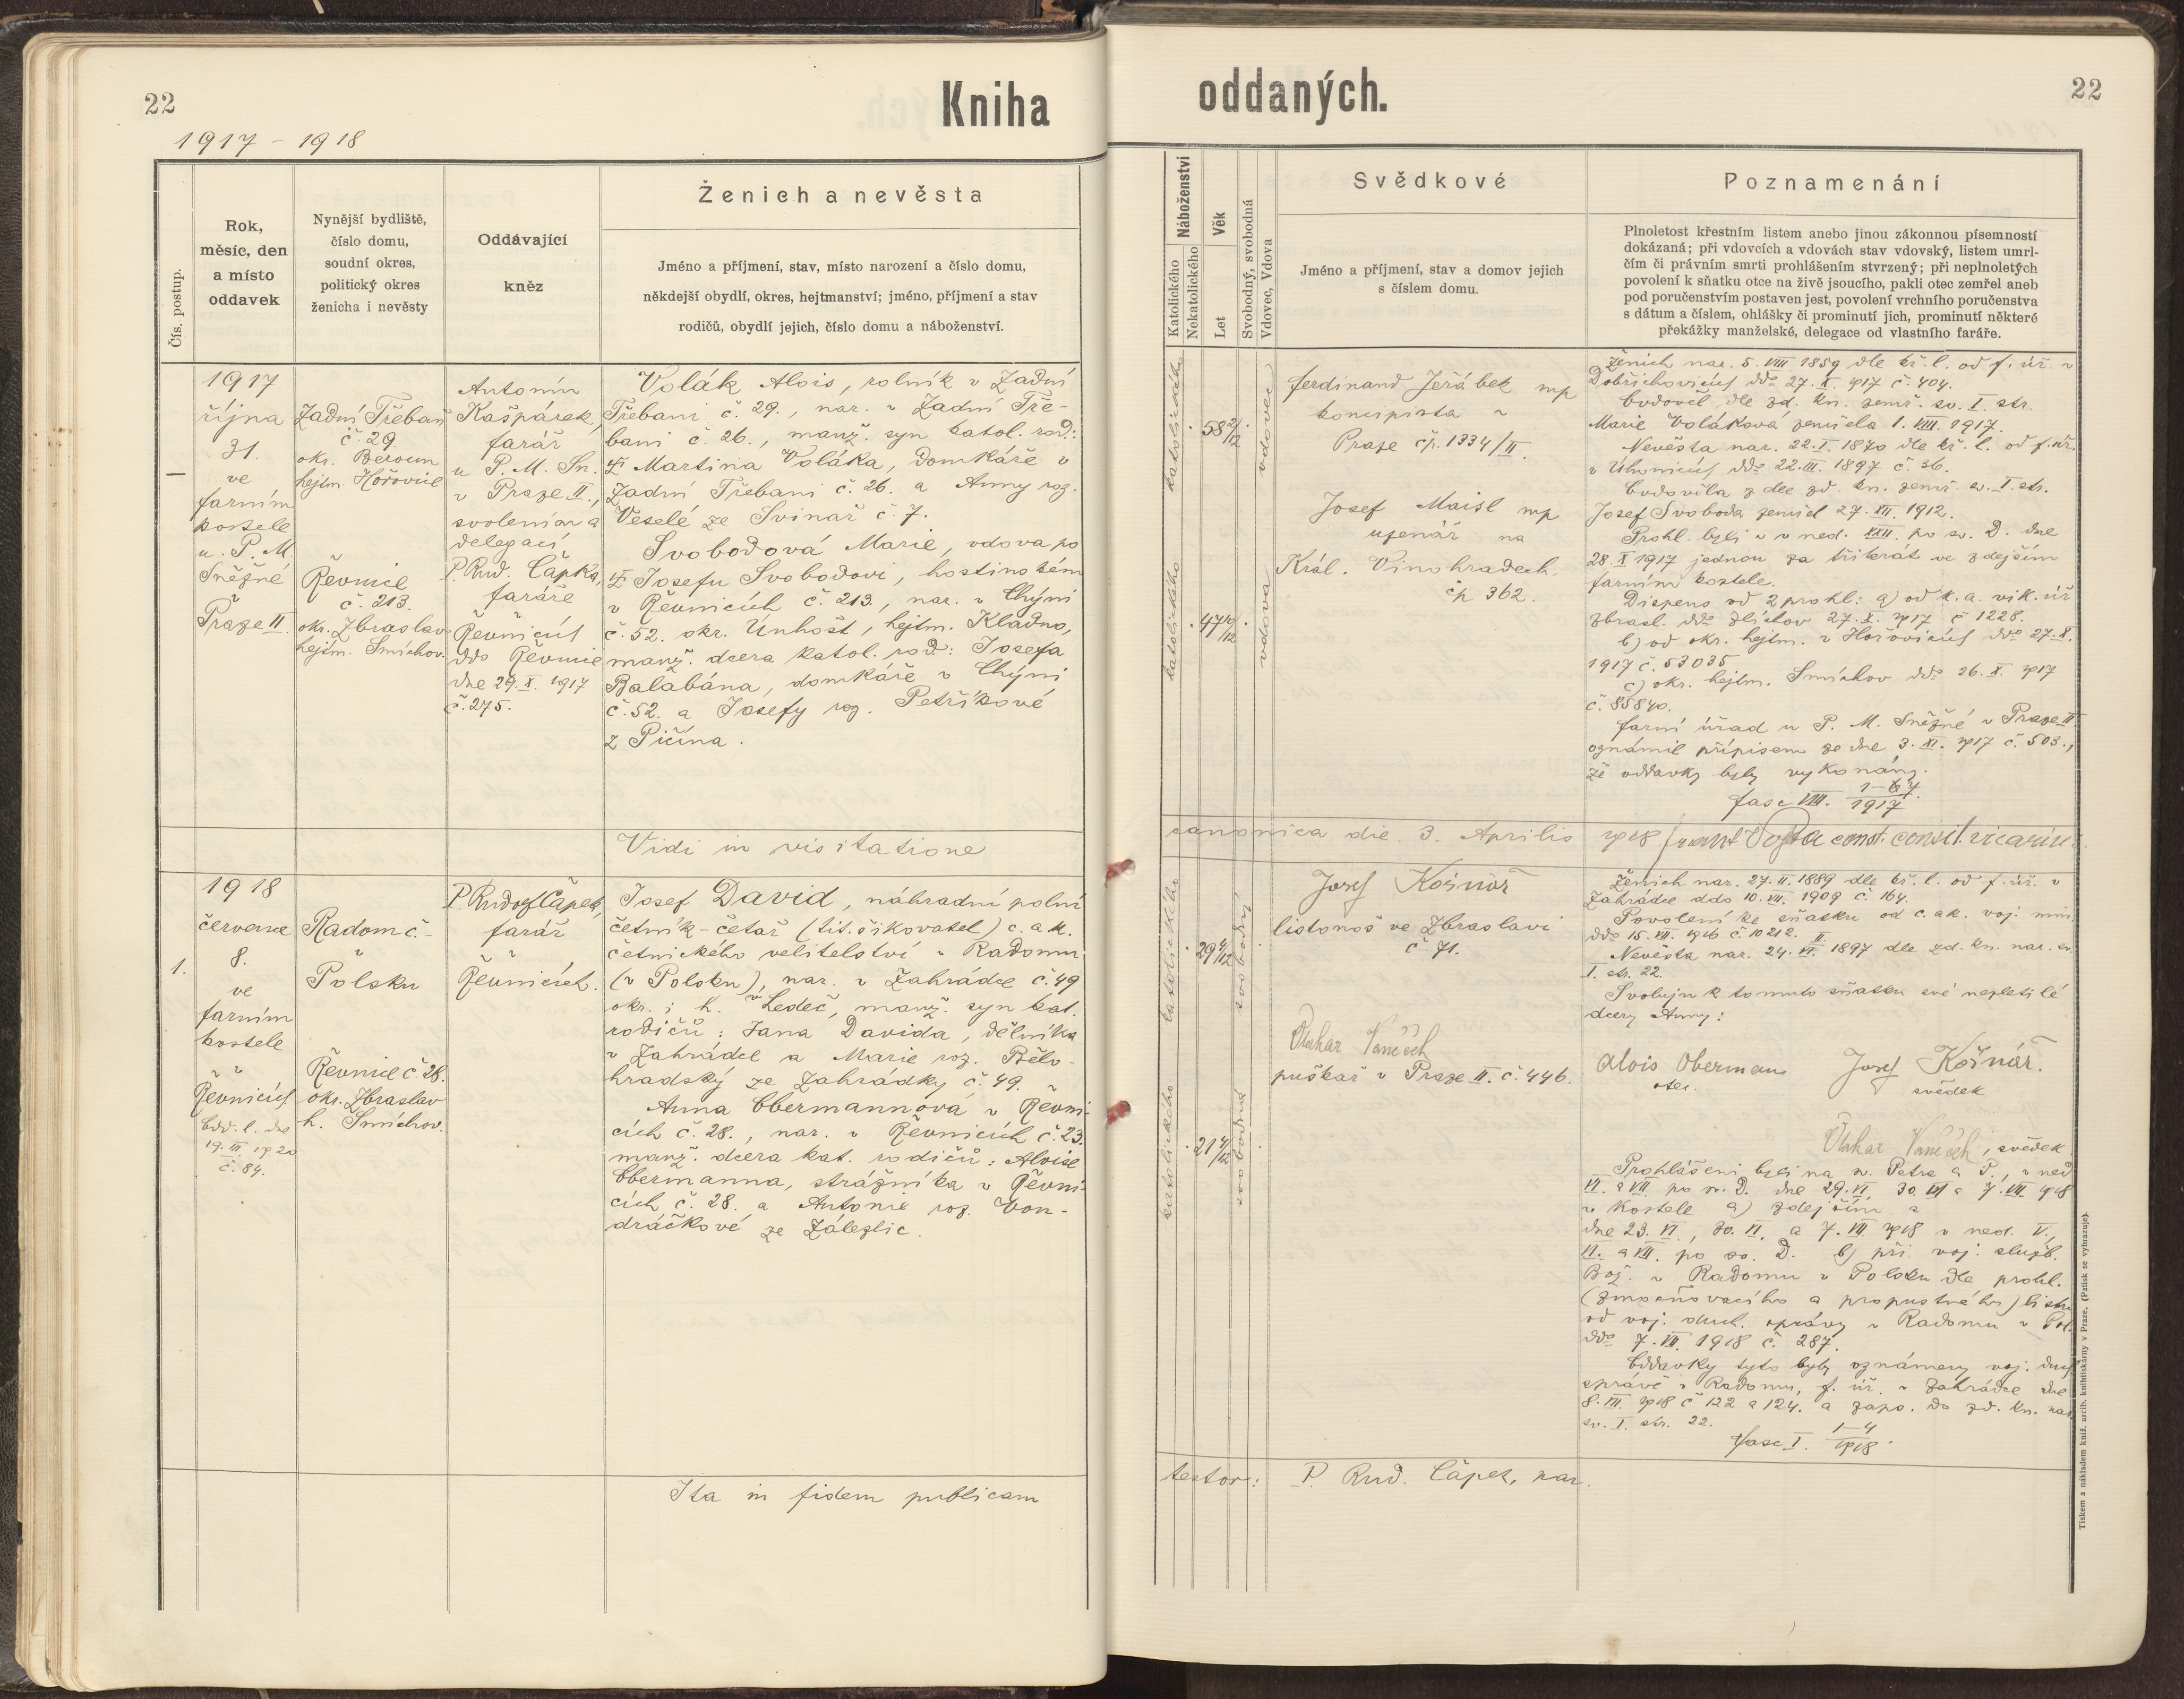 22
Kniha
1917 - 1918
Čís. postup.
Rok,
měsíc, den
a místo
oddavek
Nynější bydliště,
číslo domu,
soudní okres,
politický okres
ženicha i nevěsty
Oddávající
kněz
Ženich a nevěsta
Jméno a příjmení, stav, místo narození a číslo domu,
někdejší obydlí, okres, hejtmanství; jméno, příjmení a stav
rodičů, obydlí jejich, číslo domu a náboženství.
1917
října
31.
ve
farním
kostele
u P. M.
Sněžné
v
Praze II.
Zadní Třebaň
č. 29.
okr. Beroun
hejtm. Hořovice
Řevnice
č. 213.
okr. Zbraslav
hejtm. Smíchov.
Antonín
Kašpárek,
farář
u P. M. Sn.
v Praze II.,
svolením a
delegací
P. Rud. Čápka,
faráře
v
Řevnicích
ddo Řevnice
dne 29. X. 1917
č. 275.
Volák Alois, rolník v Zadní
Třebani č. 29., nar. v Zadní Tře-
bani č. 26., manž. syn katol. rod.:
Martina Voláka, domkáře v
Zadní Třebani č. 26. a Anny roz.
Veselé ze Svinař č. 7.
Svobodová Marie, vdova po
Josefu Svobodovi, hostinském
v Řevnicích č. 213., nar. v Chýni
č. 52. okr. Unhošt, hejtm. Kladno,
manž. dcera katol. rod.: Josefa
Balabána, domkáře v Chýni
č. 52. a Josefy roz. Petříkové
z Pičína.
Vidi in visitatione
1918
července
8.
1.
ve
farním
kostele
v
Řevnicích
Odd. l. dne
19. III. 1920
č. 84.
Radom č.-
v
Polsku
Řevnice č. 28.
okr. Zbraslav
h. Smíchov.
P. Rudolf Čápek,
farář
v
Řevnicích.
Josef David, náhradní polní
četník-četař (tit. šikovatel) c. a k.
četnického velitelství v Radomu
(v Polsku), nar. v Zahrádce č. 49
okr. i h. Ledeč, manž. syn kat.
rodičů: Jana Davida, dělníka
v Zahrádce a Marie roz. Bělo-
hradský ze Zahrádky č. 49.
Anna Obermannová v Řevni-
cích č. 28., nar. v Řevnicích č. 23.
manž. dcera kat. rodičů: Aloise
Obermanna, strážníka v Řevni-
cích č. 28. a Antonie roz. Von-
dráčkové ze Zálezlic.
Ita in fidem publicam
oddaných.
22
Náboženství
Katolického
Nekatolického
Věk
Let
Svobodný, svobodná
Vdovec, Vdova
Svědkové
Jméno a příjmení, stav a domov jejich
s číslem domu.
Poznamenání
Plnoletost křestním listem anebo jinou zákonnou písemností
dokázaná; při vdovcích a vdovách stav vdovský, listem umrl-
čím či právním smrti prohlášením stvrzený; při neplnoletých
povolení k sňatku otce na živě jsoucího, pakli otec zemřel aneb
pod poručenstvím postaven jest, povolení vrchního poručenstva
s dátum a číslem, ohlášky či prominutí jich, prominutí některé
překážky manželské, delegace od vlastního faráře.
katolického
58 2/12
vdovec
katolického
47 10/12
vdova
Ferdinand Jeřábek mp
koncipista v
Praze čp. 1334/II.
Josef Maisl mp
uzenář na
Král. Vinohradech
čp 362.
Ženich nar. 5. VIII 1859 dle kř. l. od f. úř. v
Dobřichovicích ddo 27. X. 1917 č. 404.
Ovdověl dle zd. kn. zemř. sv. I. str.
Marie Voláková zemřela 1. VIII. 1917.
Nevěsta nar. 22. I. 1870 dle kř. l. od f. úř.
v Úhonicích ddo 22. III. 1897 č. 36.
Ovdověla dle zd. kn. zemř. sv. I. str.
Josef Svoboda zemřel 27. XII. 1912.
Prohl. byli v ned. XXII. po sv. D. dne
28. X 1917 jednou za třikrát ve zdejším
farním kostele.
Dispens od 2 prohl: a) od k. a. vik. úř
zbrasl. ddo Zlíchov 27. X. 1917 č 1228.
b) od okr. hejtm. v Hořovicích ddo 27. X.
1917 č. 53035
c) okr. hejtm. Smíchov ddo 26. X. 1917
č. 85840.
Farní úřad u P. M. Sněžné v Praze II.
oznámil přípisem ze dne 3. XI. 1917 č. 503.,
že oddavky byly vykonány.
fasc VIII. 1-67/1917
canonica die 3. Aprilis 1918
katolického
29 4/12
svobodný
katolického
21 4/12
svobodná
Josef Košnář
listonoš ve Zbraslavi
č 71.
Otakar Vaněček
puškař v Praze II. č. 446.
Ženich nar. 27. II. 1889 dle kř. l. od f. úř. v
Zahrádce ddo 10. VII. 1909 č. 164.
Povolení ke sňatku od c. a k. voj. min.
ddo 15. VII. 1916 č. 10212.
Nevěsta nar. 24. II. 1897 dle zd. kn. nar. sv.
I. str. 22.
Svoluji k tomuto sňatku své nezletilé
dcery Anny:
Alois Oberman
otec.
Josef Košnář.
svědek
Otakar Vaněček, svědek
Prohlášeni byli na sv. Petra a P., v ned
VI. a VII. po sv. D. dne 29. VI, 30. VI a 7. VII. 1918
v kostele a) zdejším a
dne 23. VI., 30. VI. a 7. VII 1918 v ned. V.,
VI. a VII. po sv. D. b) při voj. služb.
Bož. v Radomu v Polsku dle prohl.
(zmocňovacího a propustného) listu
od voj. duch. správy v Radomu v Pol.
ddo 7. VII. 1918 č. 287.
Oddavky tyto byly oznámeny voj. duch
správě v Radomu, f. úř. v Zahrádce dne
8. VII. 1918 č 122 a 124. a zaps. do zd. kn. nar
sv. I. str. 22.
fasc I. 1-4/1918.
testor: P. Rud. Čápek, par.
Tiskem a nákladem kníž. arcib. knihtiskárny v Praze. (Patisk se vyhrazuje).